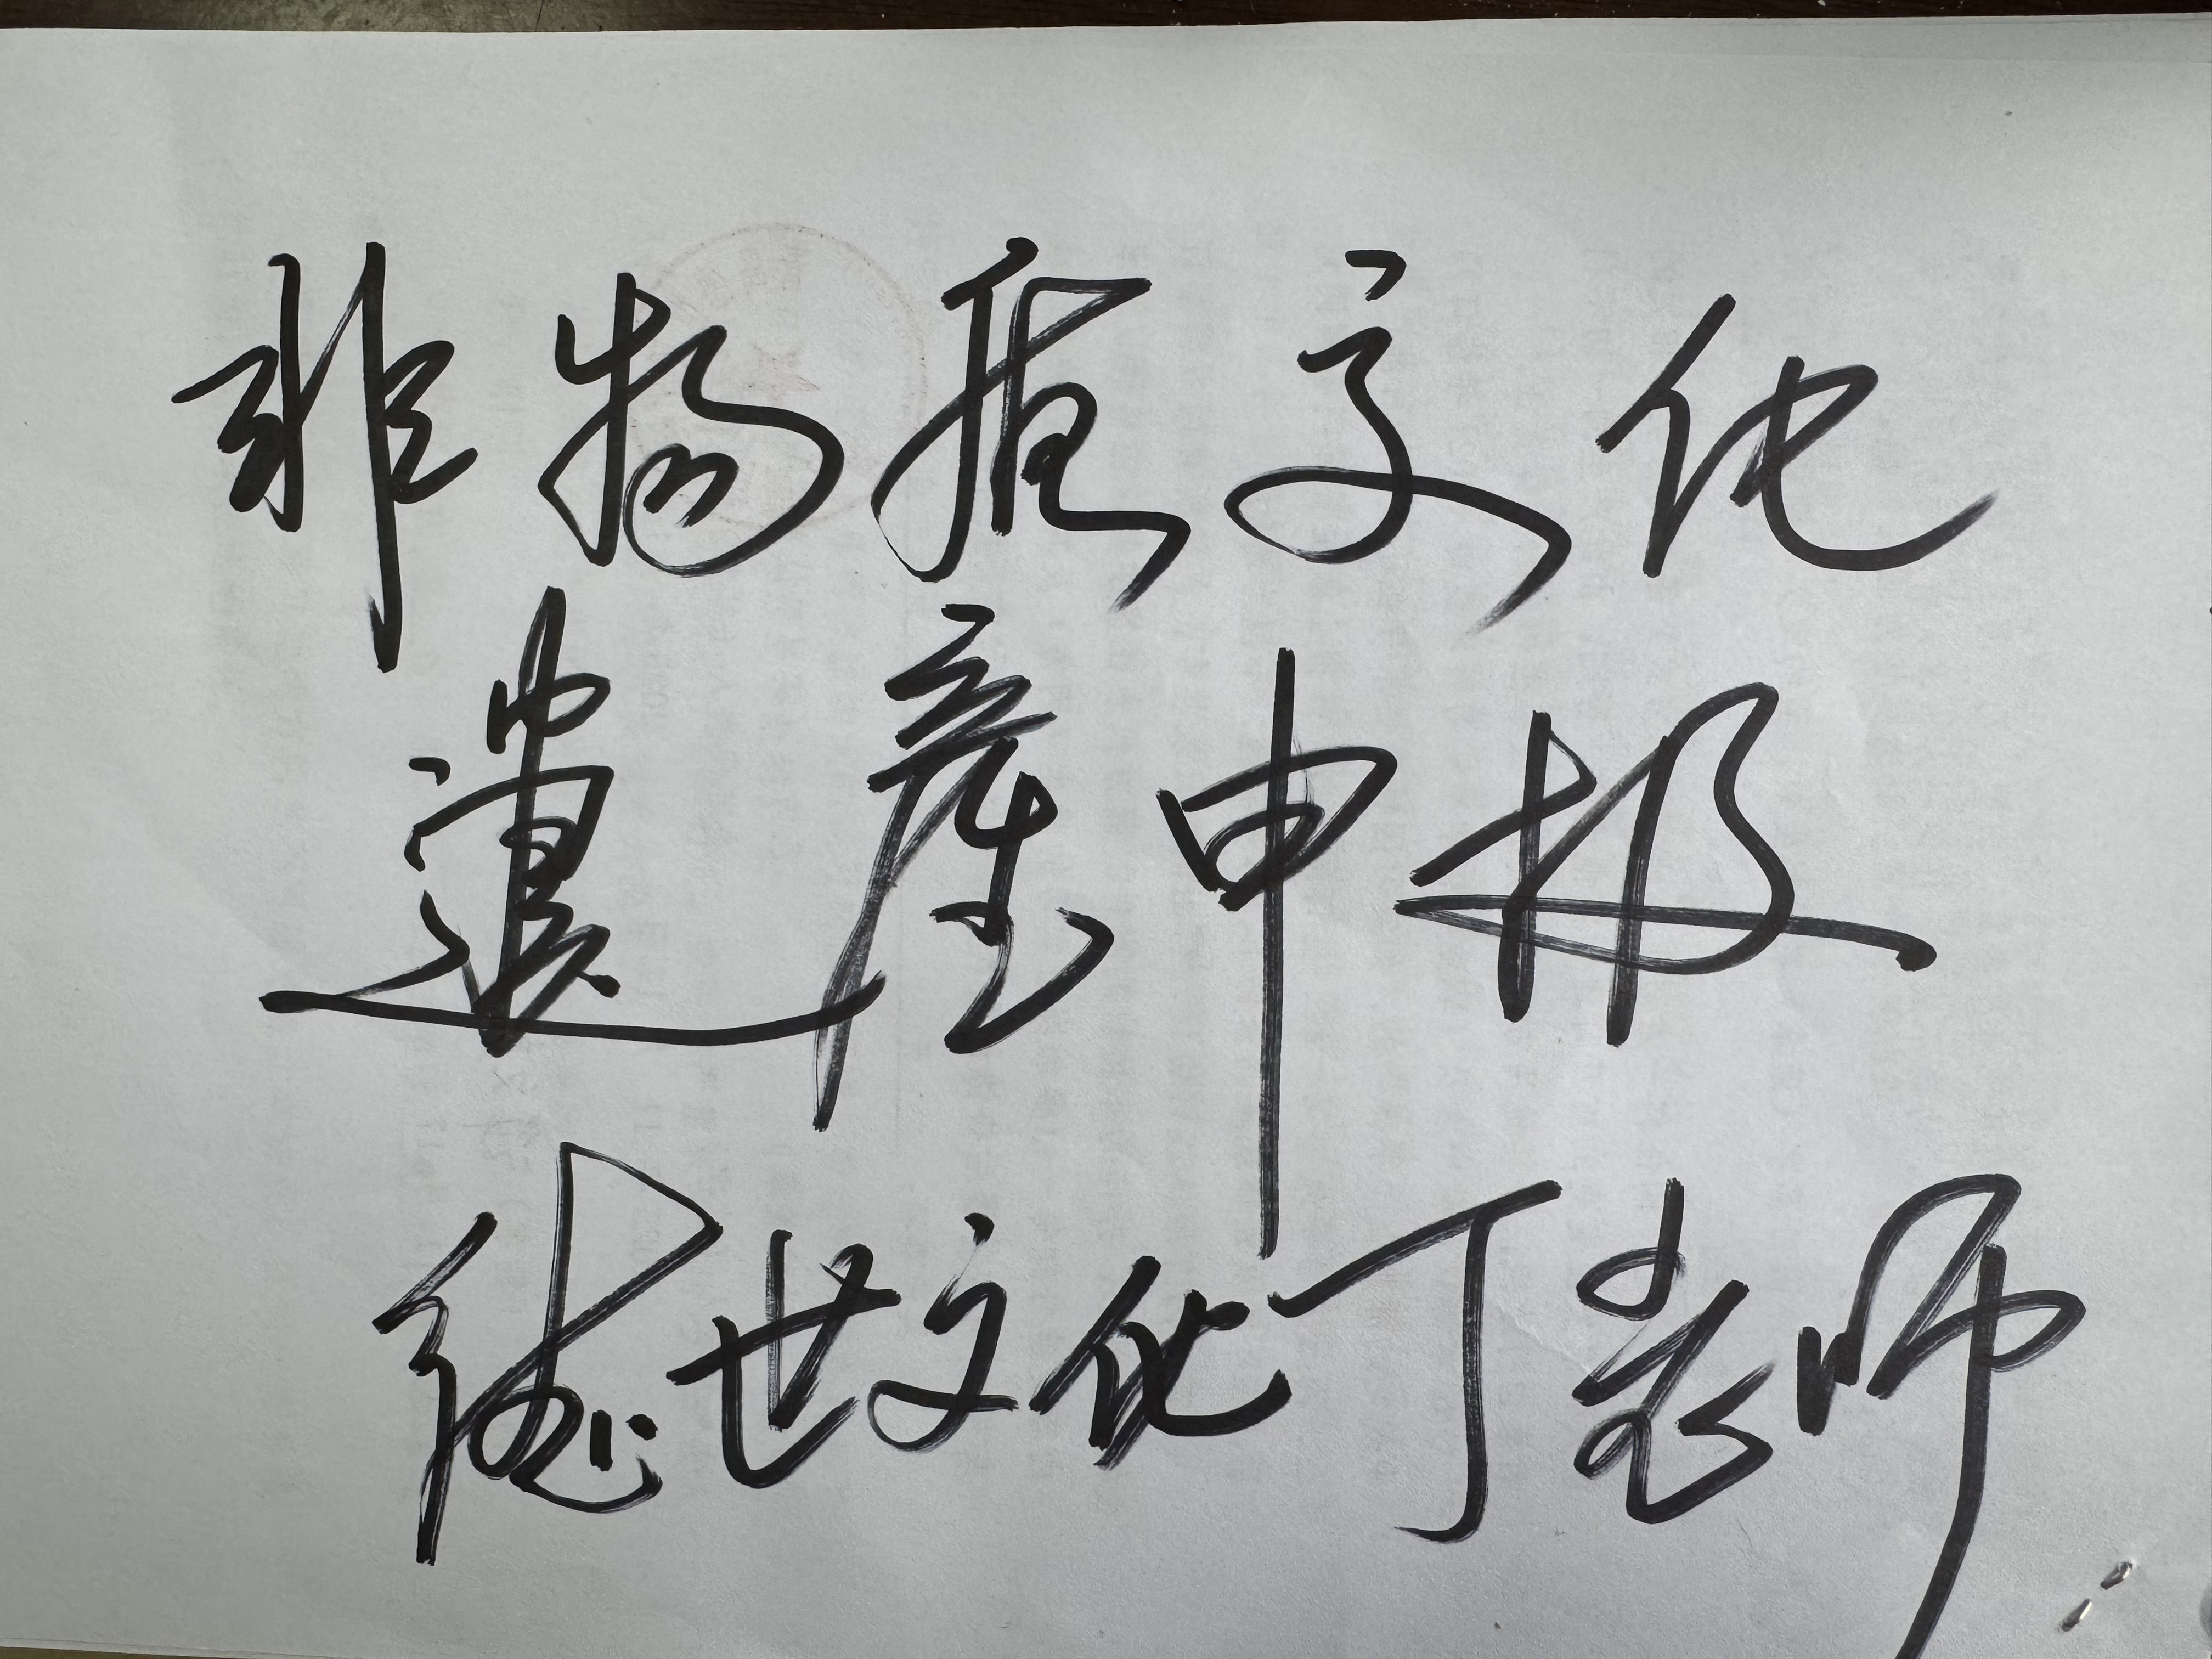 非物质文化
遗产申报
德世文化丁老师